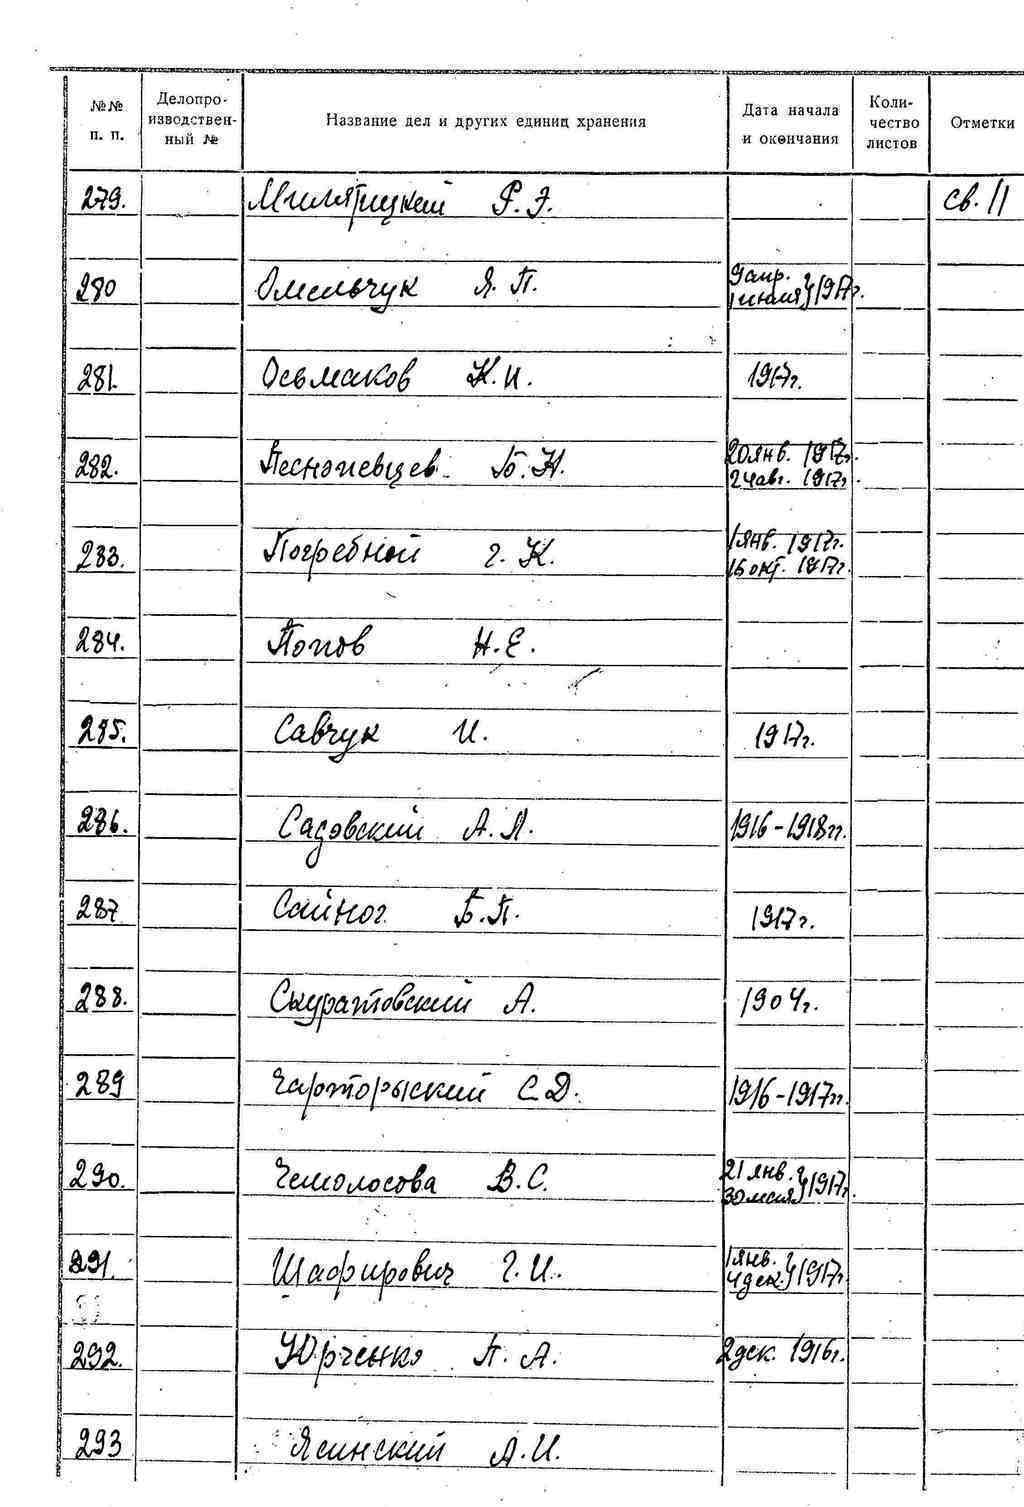 №№ п. п. Делопроизводственный № Название дел и других единиц хранения Дата начала и окончания Количество листов Отметки
279. Милятицкий Р. Э. св. 11
280 Омельчук Я. П. 9 апр. 1 июля } 1917г.
281. Осьмаков К. И. 1917г.
282. Песнопевцев Б. Н. 20 янв. 1917г. 24 авг. 1917г.
283. Погребной Г. К. 1 янв. 1917г. 16 окт. 1917г.
284. Попов Н. Е.
285. Савчук И. 1917г.
286. Садовский А. Л. 1916-1918гг.
287 Сайног Б. П. 1917г.
288. Скуратовский А. 1904г.
289 Чарторыский С. Д. 1916-1917гг.
290. Чемолосова В. С. 21 янв. 30 мая } 1917г.
291. Шафирович Г. И. 1 янв. 4 дек. } 1917г.
292. Юрченко П. А. 2 дек. 1916г.
293 Ясинский А. И.